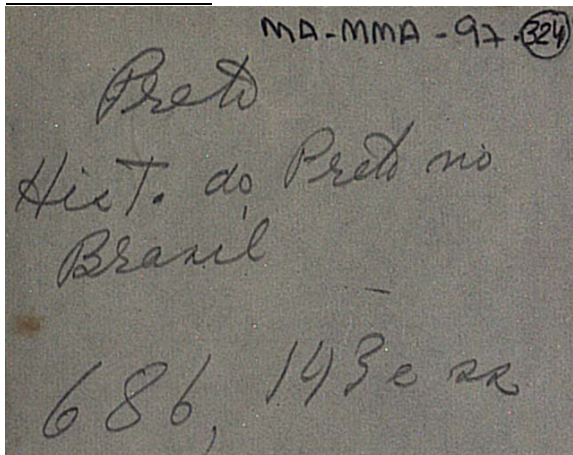 MA-MMA-97-324
Preto
Hist. do Preto no
Brasil
686, 143 e ss